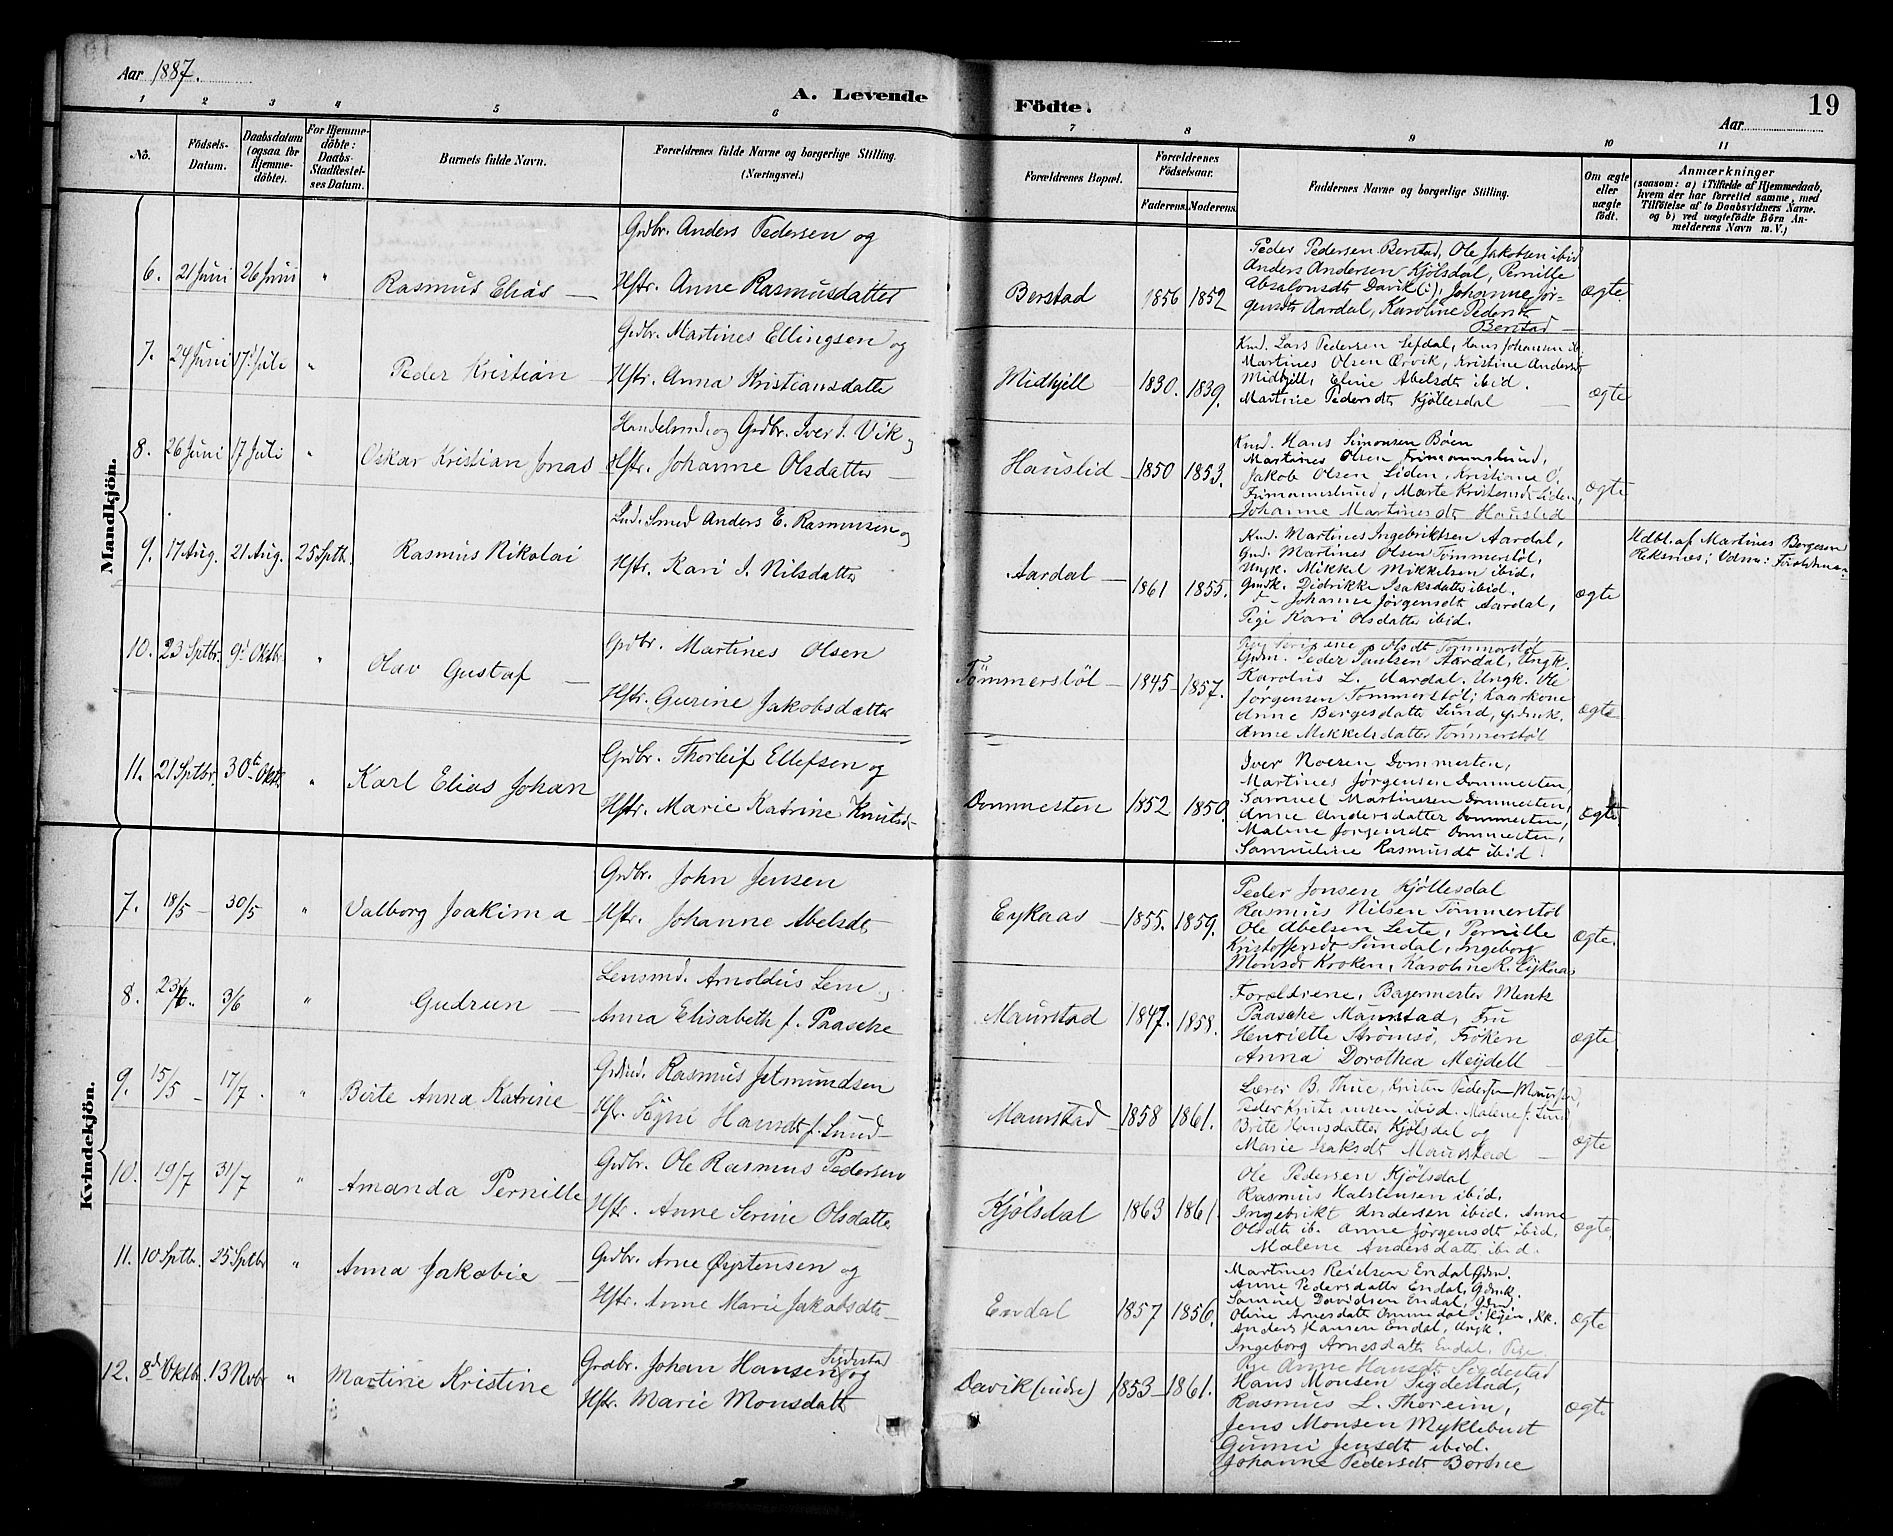 Aar 1887.
A. Levende Födte.
Aar
19
1 2 3 4 5 6 7 8 9 10 11
No.
Födsels-Datum.
Daabsdatum (ogsaa for Hjemme-döbte).
For Hjemme-döbte: Daabs-Stadfæstel-ses Datum.
Barnets fulde Navn.
Forældrenes fulde Navne og borgerlige Stilling.
(Næringsvei.)
Forældrenes Bopæl.
Forældrenes Födselsaar.
Faderens. Moderens.
Faddernes Navne og borgerlige Stilling.
Om ægte eller uægte födt.
Anmærkninger
(saasom: a) i Tilfælde af Hjemmedaab,
hvem der har forrettet samme, med
Tilföielse af to Daabsvidners Navne.
og b) ved uægtefödte Börn An-
melderens Navn m. V.)
Mandkjön.
6. 21 Juni 26 Juni " Rasmus Elias —
Grdbr. Anders Pedersen og
Hstr. Anne Rasmusdatter
Berstad 1856 1852
Peder Pedersen Berstad, Ole Jakobsen ibid
Anders Andersen Kjölsdal, Pernille
Absalonsdt Davik (i), Johanne Jör-
gensdt Aardal, Karoline Pedersdt
Berstad —
ægte
7. 24 Juni 17 Juli " Peder Kristian
Grdbr. Martines Ellingsen og
Hstr. Anna Kristiansdatter
Midhjell 1830. 1839.
Kmd. Lars Pedersen Lefdal, Hans Johannsen ib.
Martines Olsen Ørvik, Kristine Andersdt
Midhjell, Eline Abelsdt ibid.
Martine Pedersdt Kjöllesdal —
ægte
8. 26 Juni 17 Juli " Oskar Kristian Jonas
Handelsmd. og Grdbr. Iver J. Vik og
Hstr. Johanne Olsdatter —
Hauslid — 1850 1853.
Kmd. Hans Simonsen Böen
Martines Olsen Frimannslund,
Jakob Olsen Liden, Kristiane O.
Frimannslund, Marte Kristensdt Liden,
Johanne Martinesdt Hauslid
ægte
9. 17 Aug. 21 Aug. 25 Sptb. Rasmus Nikolai
Ind. Smed Anders E. Rasmusen og
Hstr. Kari J. Nilsdatter
Aardal — 1861 1855.
Kmd. Martines Ingebriktsen Aardal,
Gmd. Martines Olsen Tömmerstöl,
Ungk. Mikkel Mikkelsen ibid.
Gmdk. Didrikke Isaksdatter ibid.
d— Johanne Jörgensdt Aardal,
Pige Kari Olsdatter ibid.
ægte
Hdbt. af Martines Börgesen
10. 23 Sptbr. 9d Oktbr. " Olav Gustaf —
Grdbr. Martines Olsen
Hstr. Gurine Jakobsdatter
Tömmerstöl — 1845 — 1857.
Olsdt Tömmerstöl
Gdm. Peder Paulsen Aardal, Ungk.
Karolus L. Aardal. Ungk. Ole
Jörgensen Tömmerstöl; Kaarkone
Anne Børgesdatter Lund, Gdmk.
Anne Mikkelsdatter Tömmerstöl
ægte
11. 21 Sptbr. 30te Oktb. " Karl Elias Johan
Grdbr. Thorleif Ellefsen og
Hstr. Marie Katrine Knutsdt
Dommesten 1852 1850.
Iver Noesen Dommesten,
Martines Jörgensen Dommesten,
Samuel Martinesen Dommesten,
Anne Andersdatter Dommesten,
Malene Jörgensdt Dommesten,
Samueline Rasmusdt ibid.
ægte
Kvindekjön.
7. 18/5 — 30/5 " Valborg Joakima —
Grdbr. John Jensen
Hstr. Johanne Abelsdt
Eykaas — 1855. 1859.
Peder Jonsen Kjöllesdal
Rasmus Nilsen Tömmerstöl
Ole Abelsen Leite, Pernille
Kristoffersdt Sundal, Ingeborg
Monsdt Kroken, Karoline R. Eykaas
ægte.
8. 3/6 " Gudrun —
Lensmd. Arnoldus Lem og
Anna Elisabeth f. Paasche
Maurstad 1847. 1858.
Forældrene, Bagermester Menk
Paasche Maurstad, Fru
Henriette Strömsö, Fröken
Anna Dorothea Meydell —
ægte
9. 15/5 — 17/7. " Birte Anna Katrine
Grdmd. Rasmus Jetmundsen
Hstr. Søgni Hansdt f. Lund —
Maurstad — 1858 1861.
Lærer B. Thue, Kristen Pedersen Maurstad,
Peder Kristensen ibid. Malene f. Lund
Brite Hansdatter Kjölsdal og
Marie Isaksdt Maurstad —
ægte
10. 19/7 31/7 " Amanda Pernille
Grdbr. Ole Rasmus Pedersen
Hstr. Anne Serine Olsdatter
Kjölsdal 1863 1861.
Ole Pedersen Kjölsdal
Rasmus Halstensen ibid.
Ingebrikt Andersen ibid. Anne
Olsdt ib. Anne Jörgensdt ibid.
Malene Andersdatt. ibid.
ægte
11. 10 Sptb. 25 Sptbr " Anna Jakobie —
Grdbr. Arne Øystensen og
Hstr. Anne Marie Jakobsdt —
Endal 1857 1856.
Martines Reielsen Endal Gdm.
Anne Pedersdatter Endal, Gdmk.
Samuel Davidsen Endal, Gdm.
Oline Arnesdatt Ommedal i Hyen, KK.
Anders Hansen Endal, Ungk.
Ingeborg Arnesdatt Endal, Pige.
ægte
12. 8d Oktbr. 13 Nvbr " Martine Kristine
Grdbr. Johan Hansen Sigdestad og
Hstr. Marie Monsdatt
Davik (indre) 1853 — 1861.
Pige Anne Hansdt Sigdestad
Hans Monsen Sigdestad,
Rasmus L. Thoreim,
Jens Monsen Myklebust
Gunni Jensdt ibid.
Johanne Pedersdt Bortne
ægte